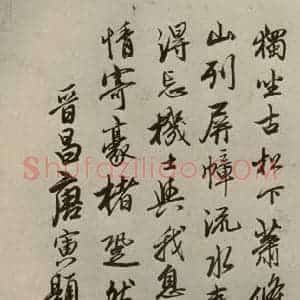 獨坐古松下蕭條
山列屏幛流水奏
得忘機士與我息
情寄豪楮瑩然
晉昌唐寅題
Shufaziliao.COM